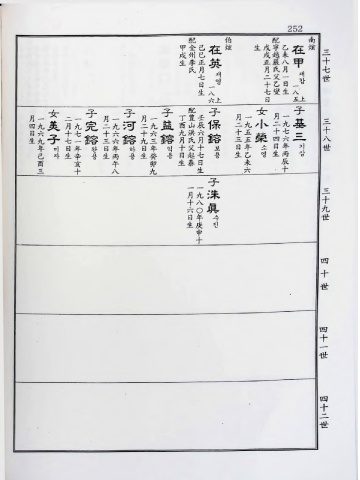 252
三十七世
南煊
在甲 재갑 一八五上
乙未八月一日生
配寧越嚴氏父乙燮
戊戌正月二十七日
生
伯煊
在英 재영 一八六上
己巳正月七日生
配全州李氏
甲戌生
三十八世
子基三 기삼
一九七六年丙辰十
月二十四日生
女小榮 소영
一九五五年乙未六
月二十三日生
子保鎔 보용
壬辰六月十七日生
配豊山洪氏父起泰
丁酉九月十日生
子益鎔 익용
一九六三年癸卯九
月二十九日生
子河鎔 하용
一九六六年丙午八
月二十三日生
子完鎔 완용
一九七一年辛亥十
二月十七日生
女美子 미자
一九六九年己酉三
月四日生
三十九世
子洙眞 수진
一九八〇年庚申十
一月十六日生
四十世
四十一世
四十二世